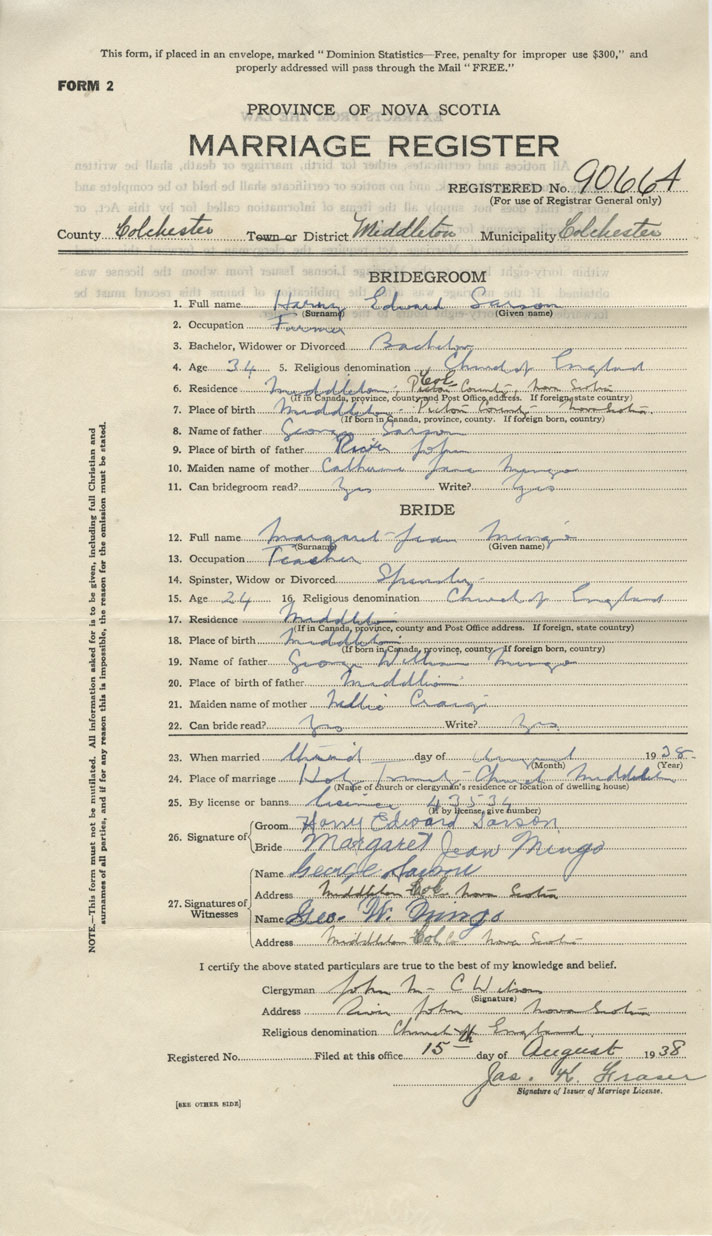 This form, if placed in an envelope, marked " Dominion Statistics—Free, penalty for improper use $300," and
properly addressed will pass through the Mail " FREE."
FORM 2
PROVINCE OF NOVA SCOTIA
MARRIAGE REGISTER
REGISTERED No. 90664
(For use of Registrar General only)
County Colchester Town or District Middleton Municipality Colchester
BRIDEGROOM
1. Full name Harry Edward Sarson
(Surname) (Given name)
2. Occupation Farmer
3. Bachelor, Widower or Divorced Bachelor
4. Age 34 5. Religious denomination Church of England
6. Residence Middleton, Picton Col County, Nova Scotia
(If in Canada, province, county and Post Office address. If foreign, state country)
7. Place of birth Middleton - Picton County - Nova Scotia
(If born in Canada, province, county. If foreign born, country)
8. Name of father George Sarson
9. Place of birth of father River John
10. Maiden name of mother Catherine Jane Mingo
11. Can bridegroom read? Yes Write? Yes
BRIDE
12. Full name Margaret Jean Mingo
(Surname) (Given name)
13. Occupation Teacher
14. Spinster, Widow or Divorced Spinster
15. Age 24 16. Religious denomination Church of England
17. Residence Middleton
(If in Canada, province, county and Post Office address. If foreign, state country)
18. Place of birth Middleton
(If born in Canada, province, county. If foreign born, country)
19. Name of father George William Mingo
20. Place of birth of father Middleton
21. Maiden name of mother Nellie Craig
22. Can bride read? Yes Write? Yes
23. When married third day of August 1938
(Month) (Year)
24. Place of marriage Holy Trinity Church Middleton
(Name of church or clergyman's residence or location of dwelling house)
25. By license or banns license 43534
(If by license, give number)
26. Signature of Groom Harry Edward Sarson
Bride Margaret Jean Mingo
27. Signatures of Witnesses Name George Sarson
Address Middleton Col Co Nova Scotia
Name Geo. W. Mingo
Address Middleton Col Co Nova Scotia
I certify the above stated particulars are true to the best of my knowledge and belief.
Clergyman John M. C Wilson
(Signature)
Address River John Nova Scotia
Religious denomination Church of England
Registered No. Filed at this office 15th day of August 1938
Jas. K. Fraser
Signature of Issuer of Marriage License.
[SEE OTHER SIDE]
NOTE.—This form must not be mutilated. All information asked for is to be given, including full Christian and
surnames of all parties, and if for any reason this is impossible, the reason for the omission must be stated.